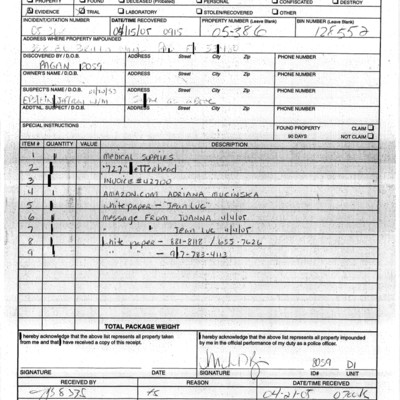 PROPERTY FOUND DECEASED (Probated) PERSONAL CONFISCATED DESTROY
EVIDENCE TRIAL LABORATORY STOLEN/RECOVERED OTHER
INCIDENT/CITATION NUMBER DATE/TIME RECOVERED PROPERTY NUMBER (Leave Blank) BIN NUMBER (Leave Blank)
04/15/05 0915 05-386
ADDRESS WHERE PROPERTY IMPOUNDED
DISCOVERED BY / D.O.B. ADDRESS Street City Zip PHONE NUMBER
PAGAN
OWNER'S NAME / D.O.B. ADDRESS Street City Zip PHONE NUMBER
SUSPECT'S NAME / D.O.B. ADDRESS Street City Zip PHONE NUMBER
ADDT'NL SUSPECT / D.O.B. ADDRESS Street City Zip PHONE NUMBER
SPECIAL INSTRUCTIONS
FOUND PROPERTY CLAIM
90 DAYS NOT CLAIM
ITEM # QUANTITY VALUE DESCRIPTION
1 MEDICAL SUPPLIES
2 "727" letterhead
3 INVOICE #42700
4 AMAZON.COM ADRIANA MUCINSKA
5 white paper - "Jean Luc"
6 message FROM JOANNA 4/4/05
7 " " Jean Luc 4/4/05
8 white paper - 881-8118 / 655-7626
9 783-4113
TOTAL PACKAGE WEIGHT
I hereby acknowledge that the above list represents all property taken
from me and that I have received a copy of this receipt.
I hereby acknowledge that the above list represents all property impounded
by me in the official performance of my duty as a police officer.
8059 D1
SIGNATURE DATE SIGNATURE ID# UNIT
RECEIVED BY REASON DATE/TIME RECEIVED
04-21-05